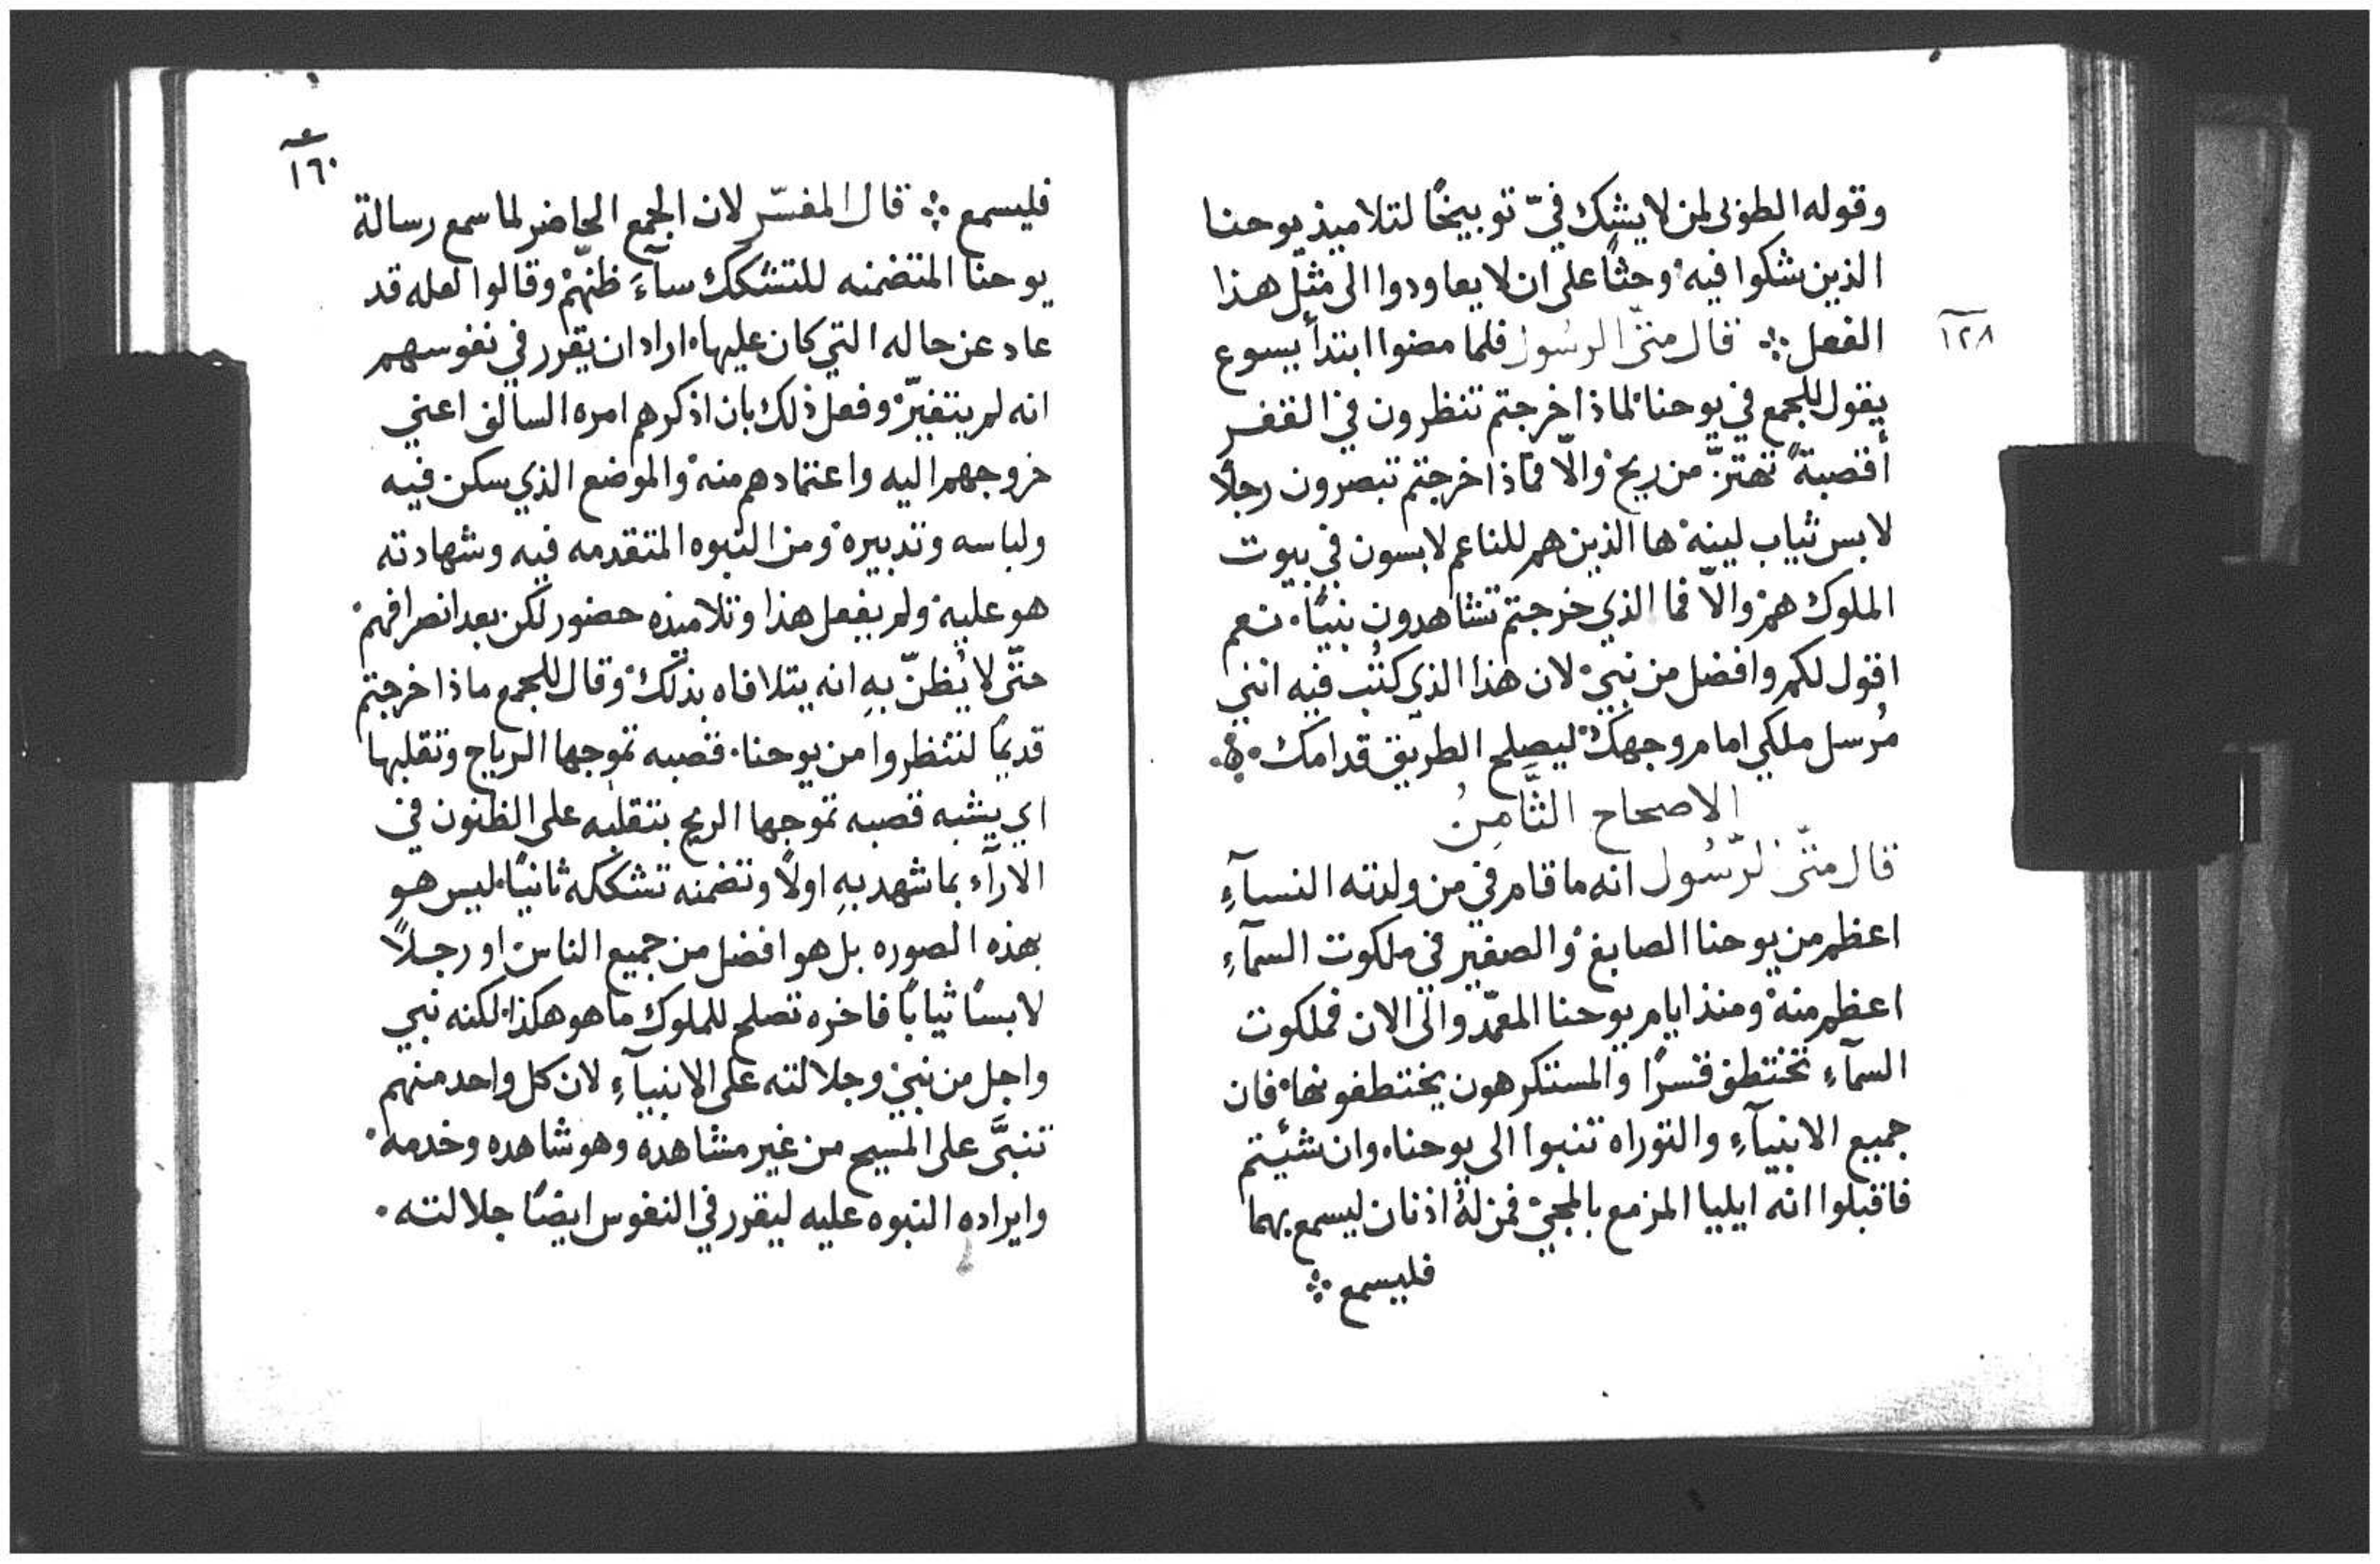 وقوله الطوبى لمن لا يشك فيّ توبيخًا لتلاميذ يوحنا
الذين شكوا فيه وحثًا على ان لا يعاودوا الى مثل هذا
١٢٨
الفعل ܀ قال متى الرسُول فلما مضوا ابتدأ يسوع
يقول للجمع في يوحنا لماذا خرجتم تنظرون في القفر
أقصبةً تهتزّ من ريح والّا فماذا خرجتم تبصرون رجلًا
لابس ثياب لينه ها الذين هم للناعم لابسون في بيوت
الملوك هم والّا فما الذي خرجتم تشاهدون نبيًا. نعم
اقول لكم وافضل من نبي لان هذا الذي كُتب فيه انني
مُرسل ملكي امام وجهك ليصلح الطريق قدامك
الاصحاح الثَّامِنُ
قال متّى الرّسُول انه ما قام في من ولدته النسآءِ
اعظم من يوحنا الصابغ والصغير في ملكوت السمآءِ
اعظم منه ومنذ ايام يوحنا المعمّد والى الان فملكوت
السمآءِ تختطف قسرًا والمستكرهون يختطفونها فان
جميع الانبيآءِ والتوراه تنبوا الى يوحنا. وان شئيتم
فاقبلوا انه ايليا المزمع بالمجيّ فمن لهُ اذنان ليسمع بهما
فليسمع ܀
١٦٠
فليسمع ܀ قال المفسّر لان الجمع الحاضر لما سمع رسالة
يوحنا المتضمنه للتشكك سآءَ ظنّهم وقالوا لعله قد
عاد عن حاله التي كان عليها. اراد ان يقرر في نفوسهم
انه لم يتغيّر وفعل ذلك بان اذكرهم امره السالف اعني
خروجهم اليه واعتمادهم منه والموضع الذي سكن فيه
ولباسه وتدبيره ومن النبوه المتقدمه فيه وشهادته
هو عليه ولم يفعل هذا وتلاميذه حضور لكن بعد انصرافهم
حتّى لا يُظنّ بهِ انه يتلافاه بذلك وقال للجمع ماذا خرجتم
قديمًا لتنظروا من يوحنا. قصبه تموجها الرياح وتقلبها
اي يشبه قصبه تموجها الريح بتقلبه على الظنون في
الارآء بما شهد بهِ اولًا وتضمنه تشككه ثانيًا. ليس هو
بهذه الصوره بل هو افضل من جميع الناس او رجلًا
لابسًا ثيابًا فاخره تصلح للملوك ما هو هكذا. لكنه نبي
واجل من نبي وجلالته على الانبيآءِ لان كل واحد منهم
تنبَّى على المسيح من غير مشاهده وهو شاهده وخدمه.
وايراده النبوه عليه ليقرر في النفوس ايضًا جلالته.